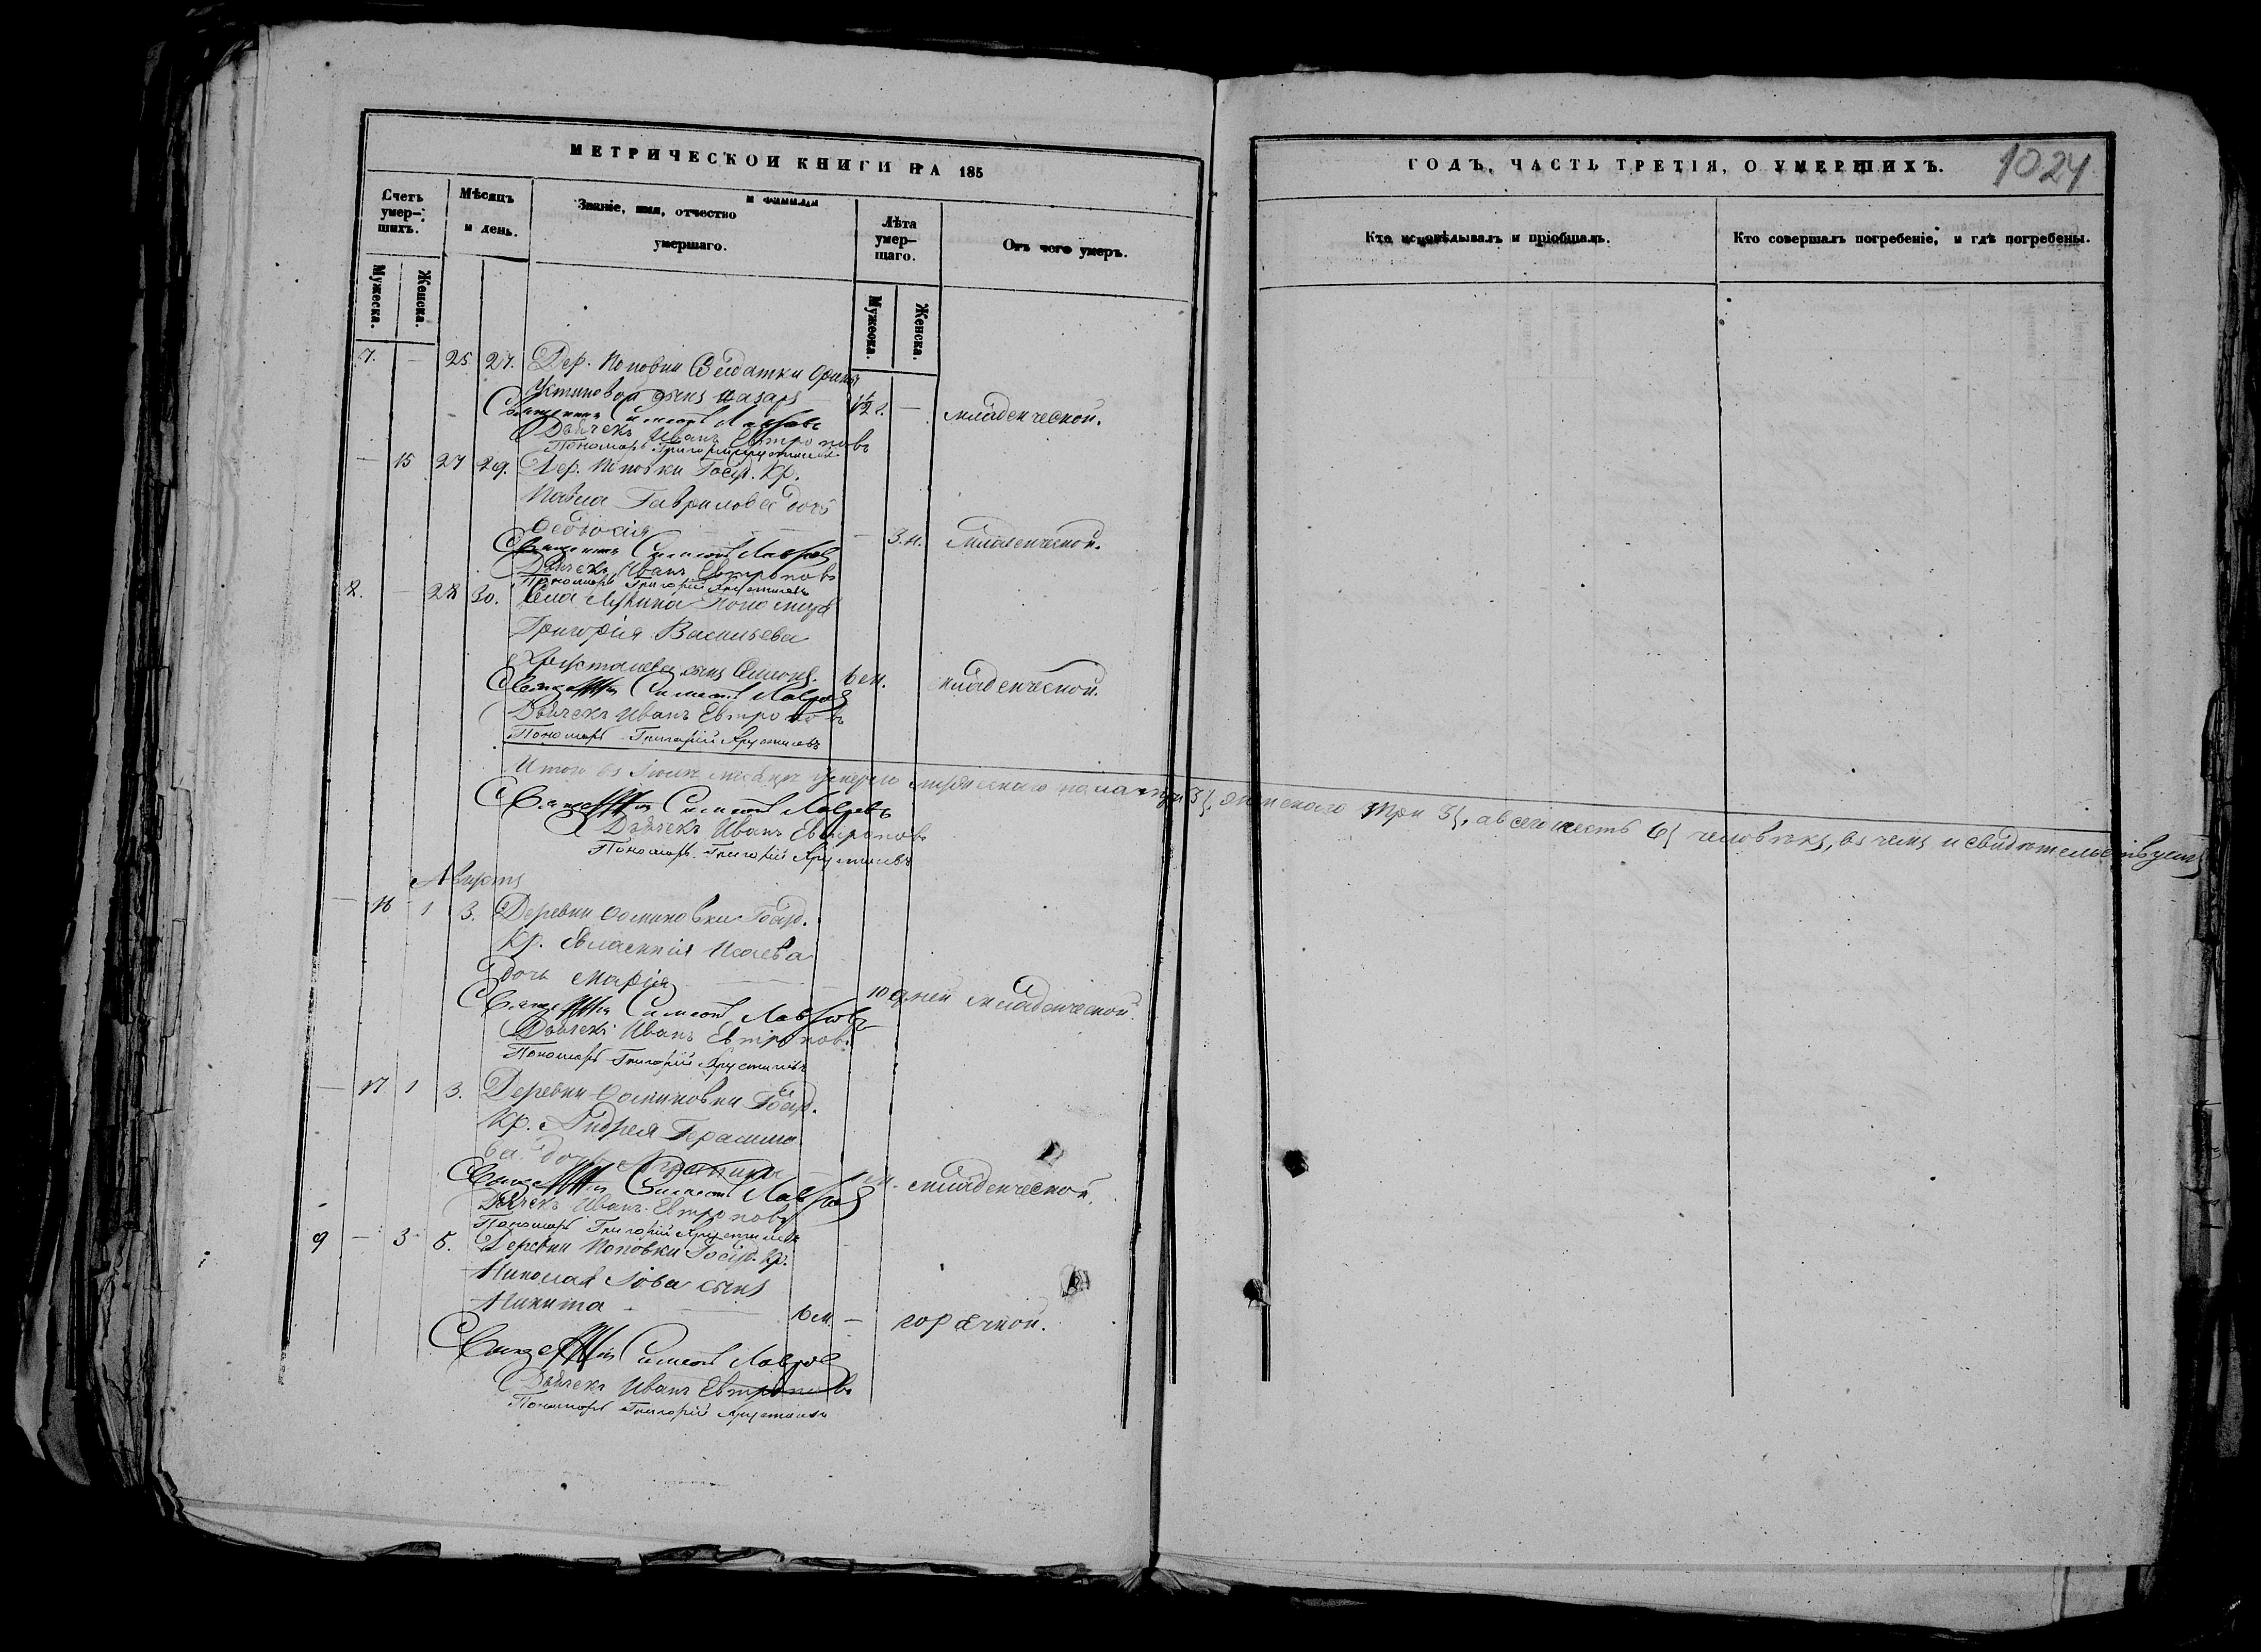 МЕТРИЧЕСКОЙ КНИГИ НА 185
Счетъ умер-шихъ.
Мужеска.
Женска.
Мѣсяцъ и день.
Званіе, имя, отчество и фамилія умершаго.
Лѣта умер-шаго.
Мужеска.
Женска.
Отъ чего умеръ.
ГОДЪ, ЧАСТЬ ТРЕТІЯ, О УМЕРШИХЪ.
1024
Кто исповѣдывалъ и пріобщалъ.
Кто совершалъ погребеніе, и гдѣ погребены.
7. — 25 27. Дер. Поповки Солдатки
Устиновой сынъ Назаръ 1/2 г. — младенческой.
Священникъ Симеонъ Лавровъ
Дьячекъ Иванъ Евтроповъ
Пономарь Григорій Хрусталевъ
— 15 27 29. Дер. Поповки Госуд. Кр.
Павла Гаврилова дочь
Феодосія — 3.н. младенческой.
Священникъ Симеонъ Лавровъ
Дьячекъ Иванъ Евтроповъ
Пономарь Григорій Хрусталевъ
8. — 28 30. Села Пономаря
Григорія Васильева
Хрусталева сынъ Симеонъ. 6 м. младенческой.
Священникъ Симеонъ Лавровъ
Дьячекъ Иванъ Евтроповъ
Пономарь Григорій Хрусталевъ
Итого въ Іюлѣ мѣсяцѣ умерло мужескаго пола три 3, женскаго три 3, а всего шесть 6 человѣкъ, въ чемъ и свидѣтельствуемъ
Священникъ Симеонъ Лавровъ
Дьячекъ Иванъ Евтроповъ
Пономарь Григорій Хрусталевъ
Августъ
— 16 1 3. Деревни Осиновки Госуд.
Кр. Евлампія Исаева
дочь Марія — 10 дней младенческой.
Священникъ Симеонъ Лавровъ
Дьячекъ Иванъ Евтроповъ
Пономарь Григорій Хрусталевъ
— 17 1 3. Деревни Осиновки Госуд.
Кр. Андрея Герасимо
ва дочь — 1 м. младенческой.
Священникъ Симеонъ Лавровъ
Дьячекъ Иванъ Евтроповъ
Пономарь Григорій Хрусталевъ
9 — 3 5. Деревни Поповки Госуд. Кр.
Николая Іова сынъ
Никита — 6 м. — горячкой.
Священникъ Симеонъ Лавровъ
Дьячекъ Иванъ Евтроповъ
Пономарь Григорій Хрусталевъ